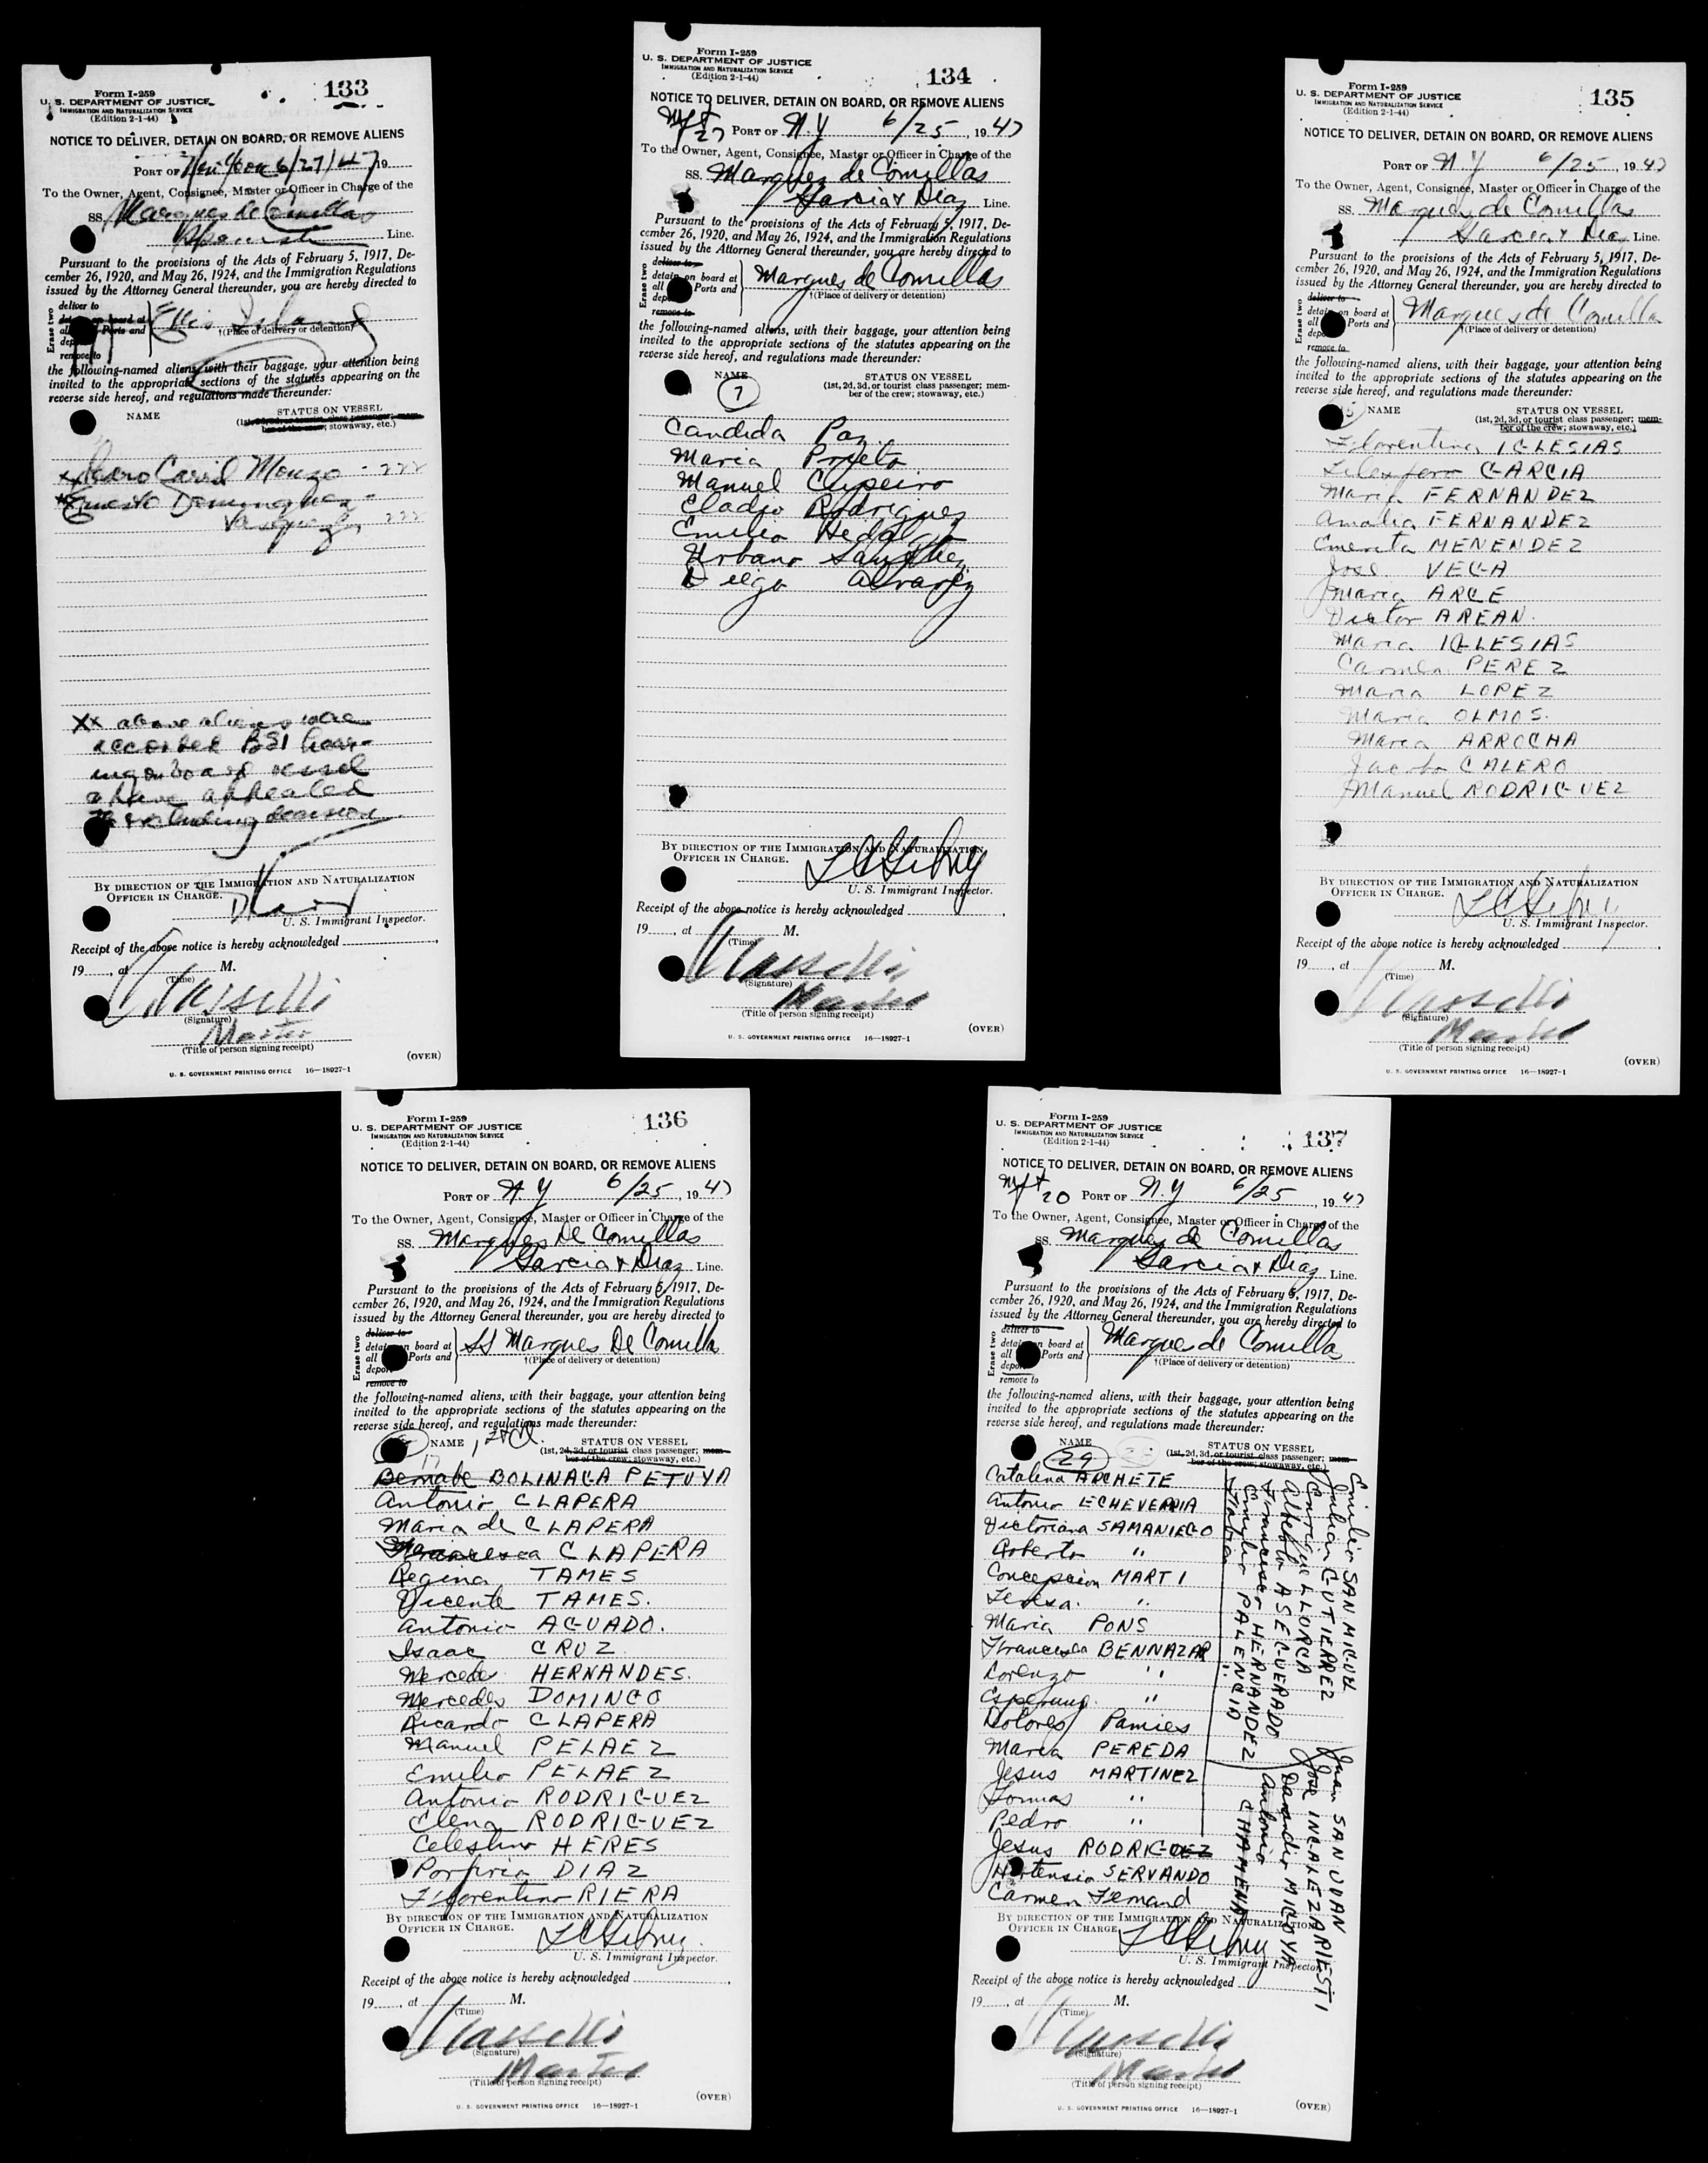 Form I-259
U. S. DEPARTMENT OF JUSTICE
IMMIGRATION AND NATURALIZATION SERVICE
(Edition 2-1-44)
133
NOTICE TO DELIVER, DETAIN ON BOARD, OR REMOVE ALIENS
PORT OF New York 6/27/47 19
To the Owner, Agent, Consignee, Master or Officer in Charge of the
SS. Marques de Comillas
Spanish Line.
Pursuant to the provisions of the Acts of February 5, 1917, De-
cember 26, 1920, and May 26, 1924, and the Immigration Regulations
issued by the Attorney General thereunder, you are hereby directed to
Erase two
deliver to
detain on board at
all Ports and
remove to
Ellis Island
†(Place of delivery or detention)
the following-named aliens, with their baggage, your attention being
invited to the appropriate sections of the statutes appearing on the
reverse side hereof, and regulations made thereunder:
NAME STATUS ON VESSEL
(1st, 2d, 3d, or tourist class passenger; mem-
ber of the crew; stowaway, etc.)
x Pedro Carid Monzo - 222
x Ernesto Dominguez -
Vasquez 222
Xx above aliens were
accorded BSI hear-
ing on board vessel
& have appealed
excluding decision
BY DIRECTION OF THE IMMIGRATION AND NATURALIZATION
OFFICER IN CHARGE.
U. S. Immigrant Inspector.
Receipt of the above notice is hereby acknowledged
19 , at M.
(Time)
(Signature)
Master
(Title of person signing receipt)
(OVER)
U. S. GOVERNMENT PRINTING OFFICE 16—18927-1
Form I-259
U. S. DEPARTMENT OF JUSTICE
IMMIGRATION AND NATURALIZATION SERVICE
(Edition 2-1-44)
134
NOTICE TO DELIVER, DETAIN ON BOARD, OR REMOVE ALIENS
27 PORT OF N.Y 6/25, 1947
To the Owner, Agent, Consignee, Master or Officer in Charge of the
SS. Marques de Comillas
Garcia & Diaz Line.
Pursuant to the provisions of the Acts of February 5, 1917, De-
cember 26, 1920, and May 26, 1924, and the Immigration Regulations
issued by the Attorney General thereunder, you are hereby directed to
Erase two
deliver to
detain on board at
all Ports and
remove to
Marques de Comillas
†(Place of delivery or detention)
the following-named aliens, with their baggage, your attention being
invited to the appropriate sections of the statutes appearing on the
reverse side hereof, and regulations made thereunder:
NAME STATUS ON VESSEL
(1st, 2d, 3d, or tourist class passenger; mem-
ber of the crew; stowaway, etc.)
7
Candida Paz
Maria Prieto
Manuel Cupeiro
Eladio Rodriguez
Emilio Hedalgo
Urbano Sanchez
Diego Alvarez
BY DIRECTION OF THE IMMIGRATION AND NATURALIZATION
OFFICER IN CHARGE.
U. S. Immigrant Inspector.
Receipt of the above notice is hereby acknowledged
19 , at M.
(Time)
(Signature)
Master
(Title of person signing receipt)
(OVER)
U. S. GOVERNMENT PRINTING OFFICE 16—18927-1
Form I-259
U. S. DEPARTMENT OF JUSTICE
IMMIGRATION AND NATURALIZATION SERVICE
(Edition 2-1-44)
135
NOTICE TO DELIVER, DETAIN ON BOARD, OR REMOVE ALIENS
PORT OF N.Y 6/25, 1947
To the Owner, Agent, Consignee, Master or Officer in Charge of the
SS. Marques de Comillas
Garcia & Diaz Line.
Pursuant to the provisions of the Acts of February 5, 1917, De-
cember 26, 1920, and May 26, 1924, and the Immigration Regulations
issued by the Attorney General thereunder, you are hereby directed to
Erase two
deliver to
detain on board at
all Ports and
remove to
Marques de Comilla
†(Place of delivery or detention)
the following-named aliens, with their baggage, your attention being
invited to the appropriate sections of the statutes appearing on the
reverse side hereof, and regulations made thereunder:
NAME STATUS ON VESSEL
(1st, 2d, 3d, or tourist class passenger; mem-
ber of the crew; stowaway, etc.)
Florentina IGLESIAS
Telesforo GARCIA
Maria FERNANDEZ
Amalia FERNANDEZ
Emerita MENENDEZ
Jose VEGA
Maria ARCE
Victor AREAN.
Maria IGLESIAS
Carmen PEREZ
Maria LOPEZ
Maria OLMOS.
Maria ARROCHA
Jacobo CALERO
Manuel RODRIGUEZ
BY DIRECTION OF THE IMMIGRATION AND NATURALIZATION
OFFICER IN CHARGE.
U. S. Immigrant Inspector.
Receipt of the above notice is hereby acknowledged
19 , at M.
(Time)
(Signature)
Master
(Title of person signing receipt)
(OVER)
U. S. GOVERNMENT PRINTING OFFICE 16—18927-1
Form I-259
U. S. DEPARTMENT OF JUSTICE
IMMIGRATION AND NATURALIZATION SERVICE
(Edition 2-1-44)
136
NOTICE TO DELIVER, DETAIN ON BOARD, OR REMOVE ALIENS
PORT OF N.Y 6/25, 1947
To the Owner, Agent, Consignee, Master or Officer in Charge of the
SS. Marques De Comillas
Garcia & Diaz Line.
Pursuant to the provisions of the Acts of February 5, 1917, De-
cember 26, 1920, and May 26, 1924, and the Immigration Regulations
issued by the Attorney General thereunder, you are hereby directed to
Erase two
deliver to
detain on board at
all Ports and
remove to
SS Marques De Comilla
†(Place of delivery or detention)
the following-named aliens, with their baggage, your attention being
invited to the appropriate sections of the statutes appearing on the
reverse side hereof, and regulations made thereunder:
NAME STATUS ON VESSEL
(1st, 2d, 3d, or tourist class passenger; mem-
ber of the crew; stowaway, etc.)
17
Bernabe BOLINAGA PETUYA
Antonio CLAPERA
Maria de CLAPERA
Francesca CLAPERA
Regina TAMES
Vicente TAMES.
Antonio AGUADO.
Isaac CRUZ
Mercedes HERNANDES.
Mercedes DOMINGO
Ricardo CLAPERA
Manuel PELAEZ
Emilio PELAEZ
Antonio RODRIGUEZ
Elena RODRIGUEZ
Celestino HERES
Porfiria DIAZ
Florentino RIERA
BY DIRECTION OF THE IMMIGRATION AND NATURALIZATION
OFFICER IN CHARGE.
U. S. Immigrant Inspector.
Receipt of the above notice is hereby acknowledged
19 , at M.
(Time)
(Signature)
Master
(Title of person signing receipt)
(OVER)
U. S. GOVERNMENT PRINTING OFFICE 16—18927-1
Form I-259
U. S. DEPARTMENT OF JUSTICE
IMMIGRATION AND NATURALIZATION SERVICE
(Edition 2-1-44)
137
NOTICE TO DELIVER, DETAIN ON BOARD, OR REMOVE ALIENS
20 PORT OF N.Y 6/25, 1947
To the Owner, Agent, Consignee, Master or Officer in Charge of the
SS. Marques de Comillas
Garcia & Diaz Line.
Pursuant to the provisions of the Acts of February 5, 1917, De-
cember 26, 1920, and May 26, 1924, and the Immigration Regulations
issued by the Attorney General thereunder, you are hereby directed to
Erase two
deliver to
detain on board at
all Ports and
remove to
Marques de Comilla
†(Place of delivery or detention)
the following-named aliens, with their baggage, your attention being
invited to the appropriate sections of the statutes appearing on the
reverse side hereof, and regulations made thereunder:
NAME STATUS ON VESSEL
(1st, 2d, 3d, or tourist class passenger; mem-
ber of the crew; stowaway, etc.)
29
Catalina ARCHETE
Antonio ECHEVERRIA
Victoriana SAMANIEGO
Roberto "
Concepcion MARTI
Teresa. "
Maria PONS
Francesca BENNAZAR
Lorenzo "
Esperanza "
Dolores Pamies
Maria PEREDA
Jesus MARTINEZ
Tomas "
Pedro "
Jesus RODRIGUEZ
Hortensia SERVANDO
Carmen Fernand
Emilio SAN MIGUEL
Julian GUTIERREZ
Enrique LLORCA
Alberto ASEGUERADO
Francisco HERNANDEZ
Emilio PALENCIA
Fabian "
Juan SAN JUAN
Jose INGALEZ ARIESTI
Damadio MIGOYA
Antonio CHAMENA
BY DIRECTION OF THE IMMIGRATION AND NATURALIZATION
OFFICER IN CHARGE.
U. S. Immigrant Inspector.
Receipt of the above notice is hereby acknowledged
19 , at M.
(Time)
(Signature)
Master
(Title of person signing receipt)
(OVER)
U. S. GOVERNMENT PRINTING OFFICE 16—18927-1